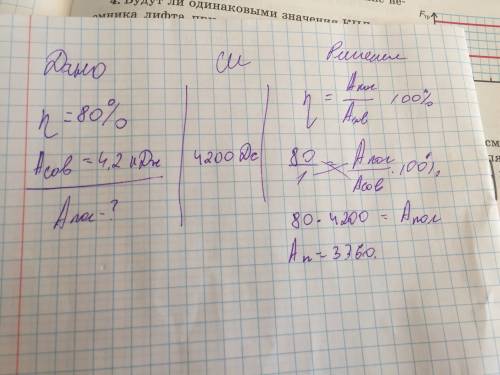 4. Будут ли одинаковыми значения КПД
омника лифта при
Fтр
Дано
СИ
Решение
η = 80%
Aсов = 4,2 кДж
Aпол - ?
4200 Дж
η = Aпол/Aсов · 100%
80/1 = Aпол/Aсов · 100%
80 · 4200 = Aпол
Aп = 3360.